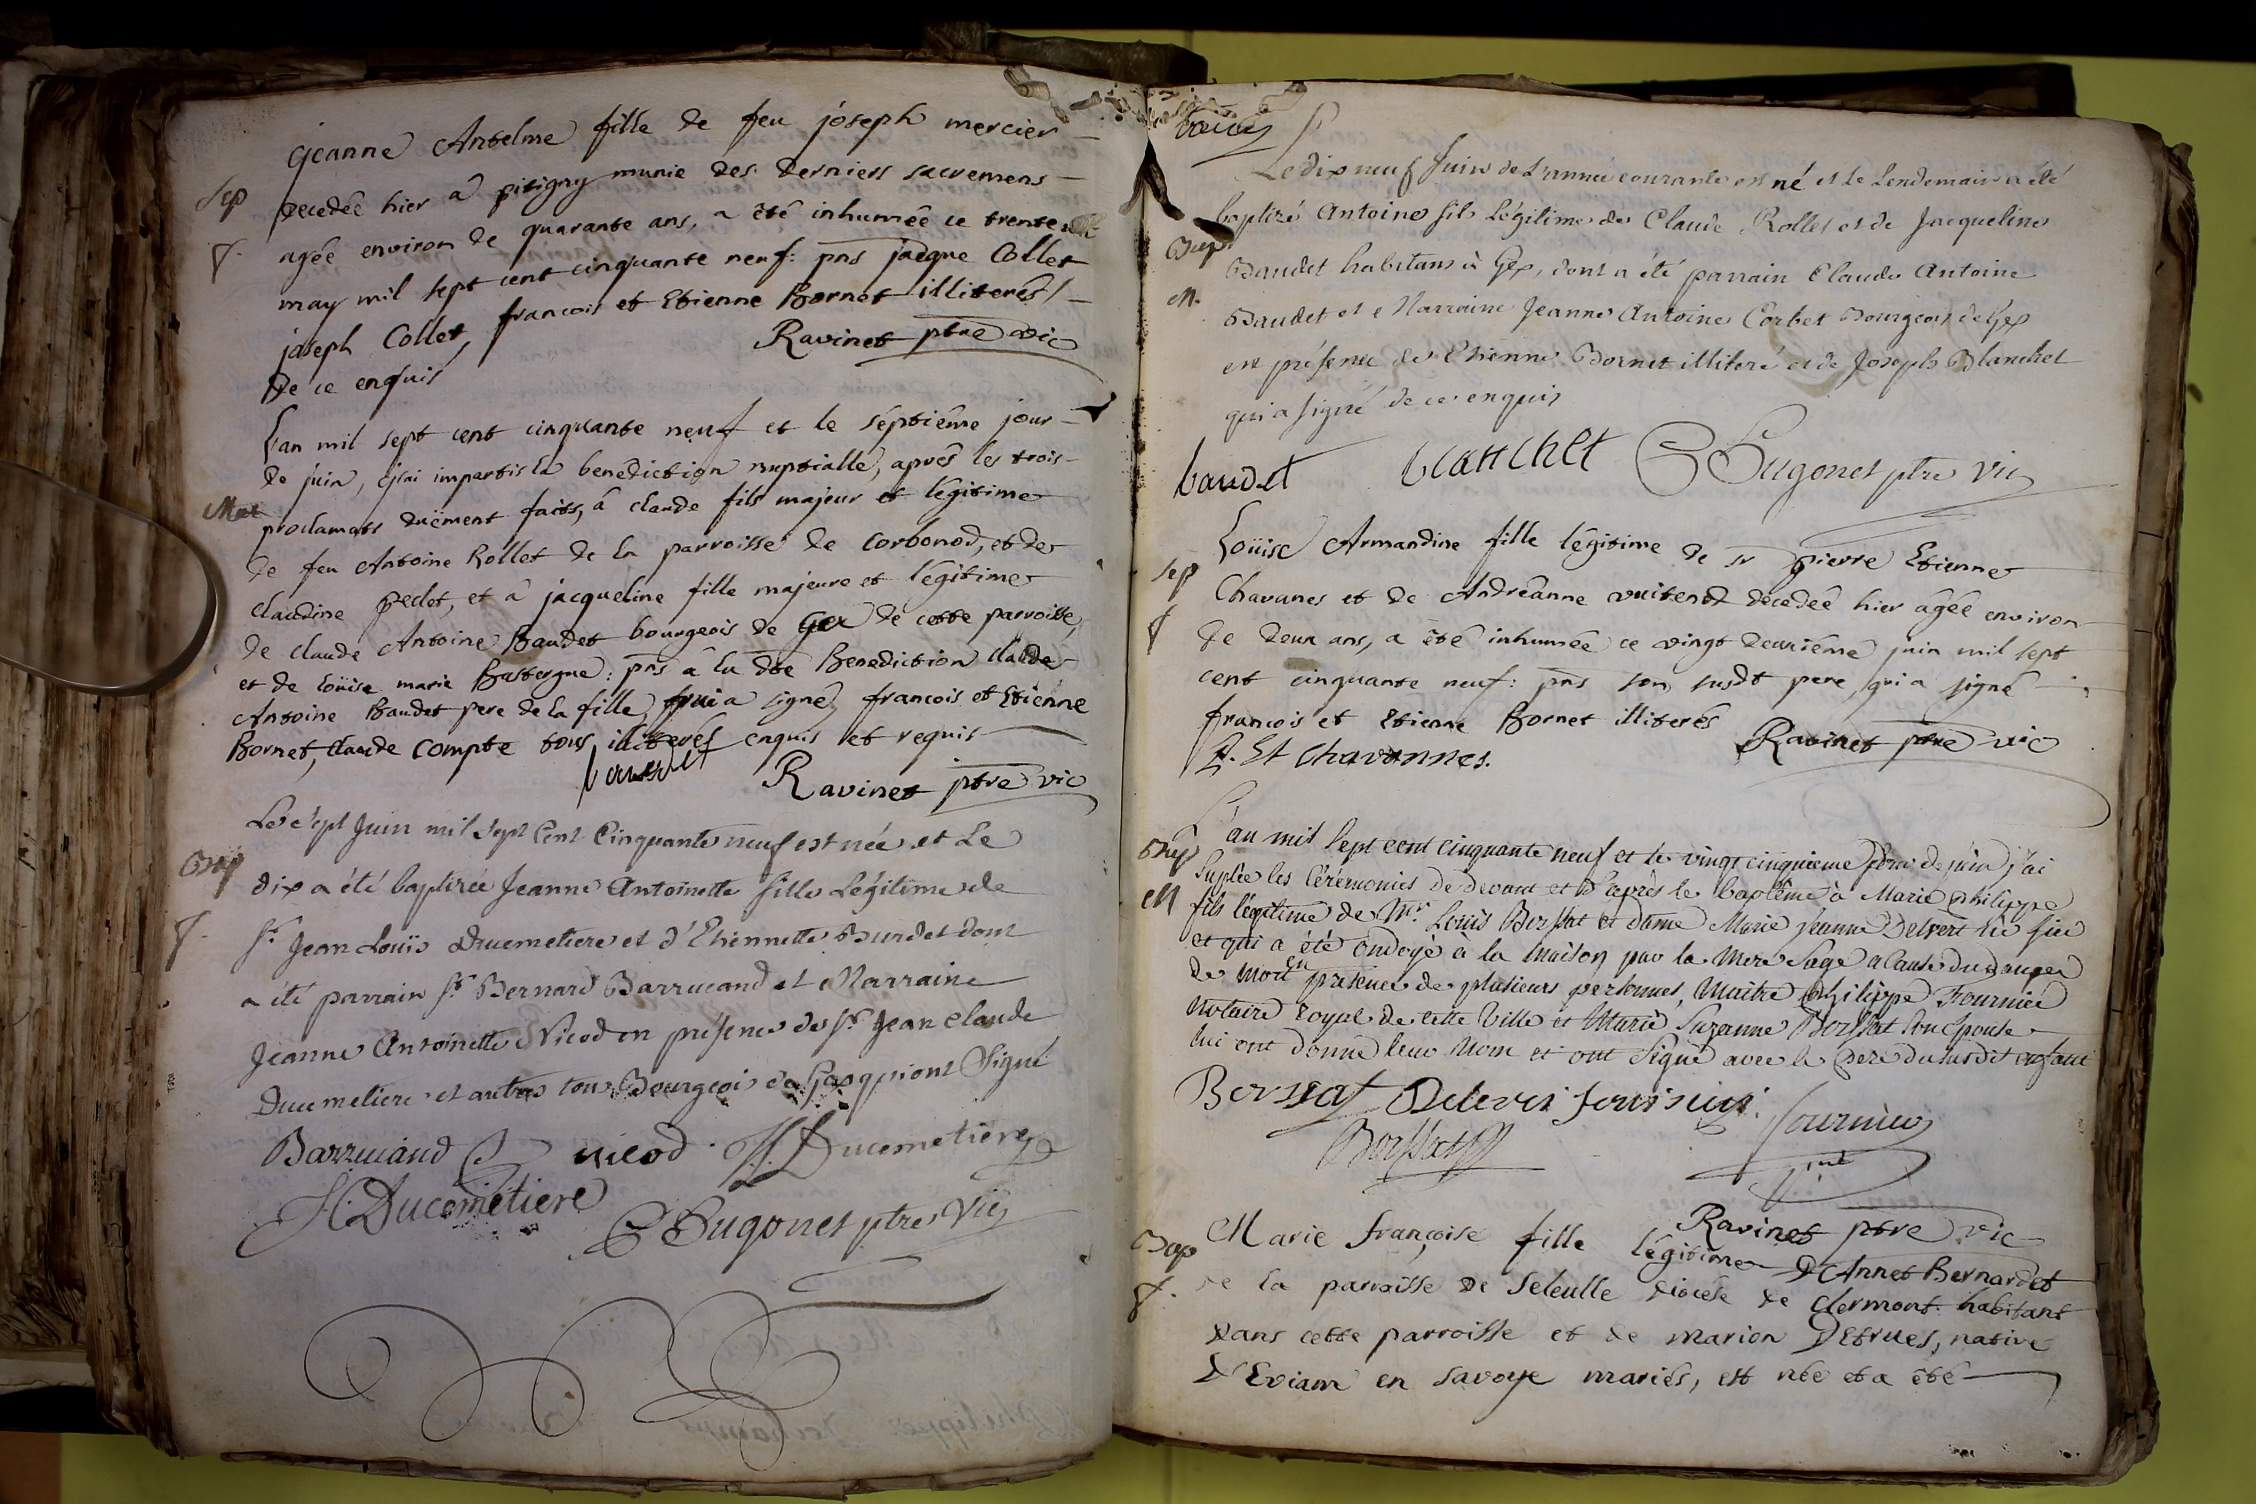 Jeanne Antelme fille de feu joseph mercier
Sep
decedée hier a pitigny munie des derniers sacremens
agée environ de quarante ans, a été inhumée ce trente
f.
may mil sept cent cinquante neuf: pns jacque Collet
joseph Collet, francois et Etienne Bornet illiterés
de ce enquis
Ravinet ptre vic
Lan mil sept cent cinquante neuf et le séptiême jour
de juin, j'ai imparti la benediction nuptialle, aprês les trois
Mar
proclamats duëment faits, â claude fils majeur et légitime
de feu Antoine Rollet de la parroisse de Corbonod, et de
claudine peclet, et â jacqueline fille majeure et légitime
de claude Antoine Baudet bourgeois de Gex de cette parroisse,
et de Loüise marie Bastergue: pns â la dte Benediction claude
Antoine Baudet pere de la fille, qui a signé, francois et Etienne
Bornet, claude Compte tous illiterés enquis et requis
baudet
Ravinet ptre vic
Le sept Juin mil sept Cent Cinquante neuf est née et Le
Bap
dix a été baptizée Jeanne Antoinette fille Légitime de
f.
sr. Jean Louïs Ducmetiere et d'Etiennette Burdet dont
a été parrain sr. Bernard Barrucand et Marraine
Jeanne Antoinette Nicod en présence de sr. Jean Claude
Ducmetiere et autres tous Bourgeois de Gex qui ont Signé
Barrucand nicod Ducometiere
Ducometiere
Bugonet ptre Vic
Le dix neuf Juin de L'année courante est né et le Lendemain a été
baptizé Antoine fils Légitime de Claude Rollet et de Jacqueline
Bap
Baudet habitans à Gex, dont a été parrain Claude Antoine
M.
Baudet et Marraine Jeanne Antoine Corbet Bourgeois de Gex
en présence de Etienne Bornet illiteré et de Joseph Blanchet
qui a signé de ce enquis
baudet blanchet Bugonet ptre Vic
Loüise Armandine fille légitime de sr pierre Etienne
Sep
Chavanes et de Andréanne vuitend decedée hier âgée environ
f
de deux ans, a été inhumée ce vingt deuxiéme juin mil sept
cent cinquante neuf: pns son susdt pere qui a signé
francois et Etienne Bornet illiterés
Ravinet ptre vic
P. Et Chavannes.
L'an mil sept cent cinquante neuf et le vingt cinquieme jour de juin j'ai
Bap
Suplée les Cérémonies de devant et d'après le baptême à Marie philippe
M
fils légitime de Mr. Louis Borssat et dame Marie Jeanne Delvert
et qui a été ondoyé à la maison par la Mere Sage a Cause du danger
de Mort en présence de plusieurs personnes, Maitre philippe Fournier
Notaire royal de cette Ville et Marie Suzanne Borssat son Epouse
lui ont donné leur Nom et ont signé avec le pere du susdit enfant
Borssat
Borssat
fournier
Ravinet ptre vic
Bap
Marie françoise fille légitime d'Annet Bernardet
f.
de la parroisse de Seleulle diocése de Clermont habitant
dans cette parroisse et de marion Detrues, native
d'Eviam en savoye mariés, est née et a été